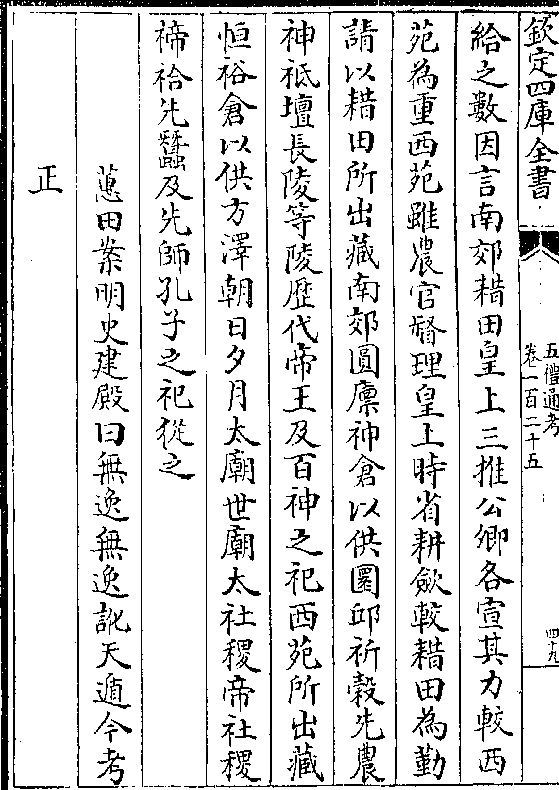 欽定四庫全書
五禮通考
卷一百二十五
四十九
給之數因言南郊耤田皇上三推公卿各宣其力較西
苑為重西苑雖農官督理皇上時省耕斂較耤田為勤
請以耤田所出藏南郊圓廩神倉以供圜邱祈穀先農
神祇壇長陵等陵歴代帝王及百神之祀西苑所出藏
恒裕倉以供方澤朝日夕月太廟世廟太社稷帝社稷
禘祫先蠶及先師孔子之祀從之
蕙田案明史建殿曰無逸無逸訛天遁今考
正